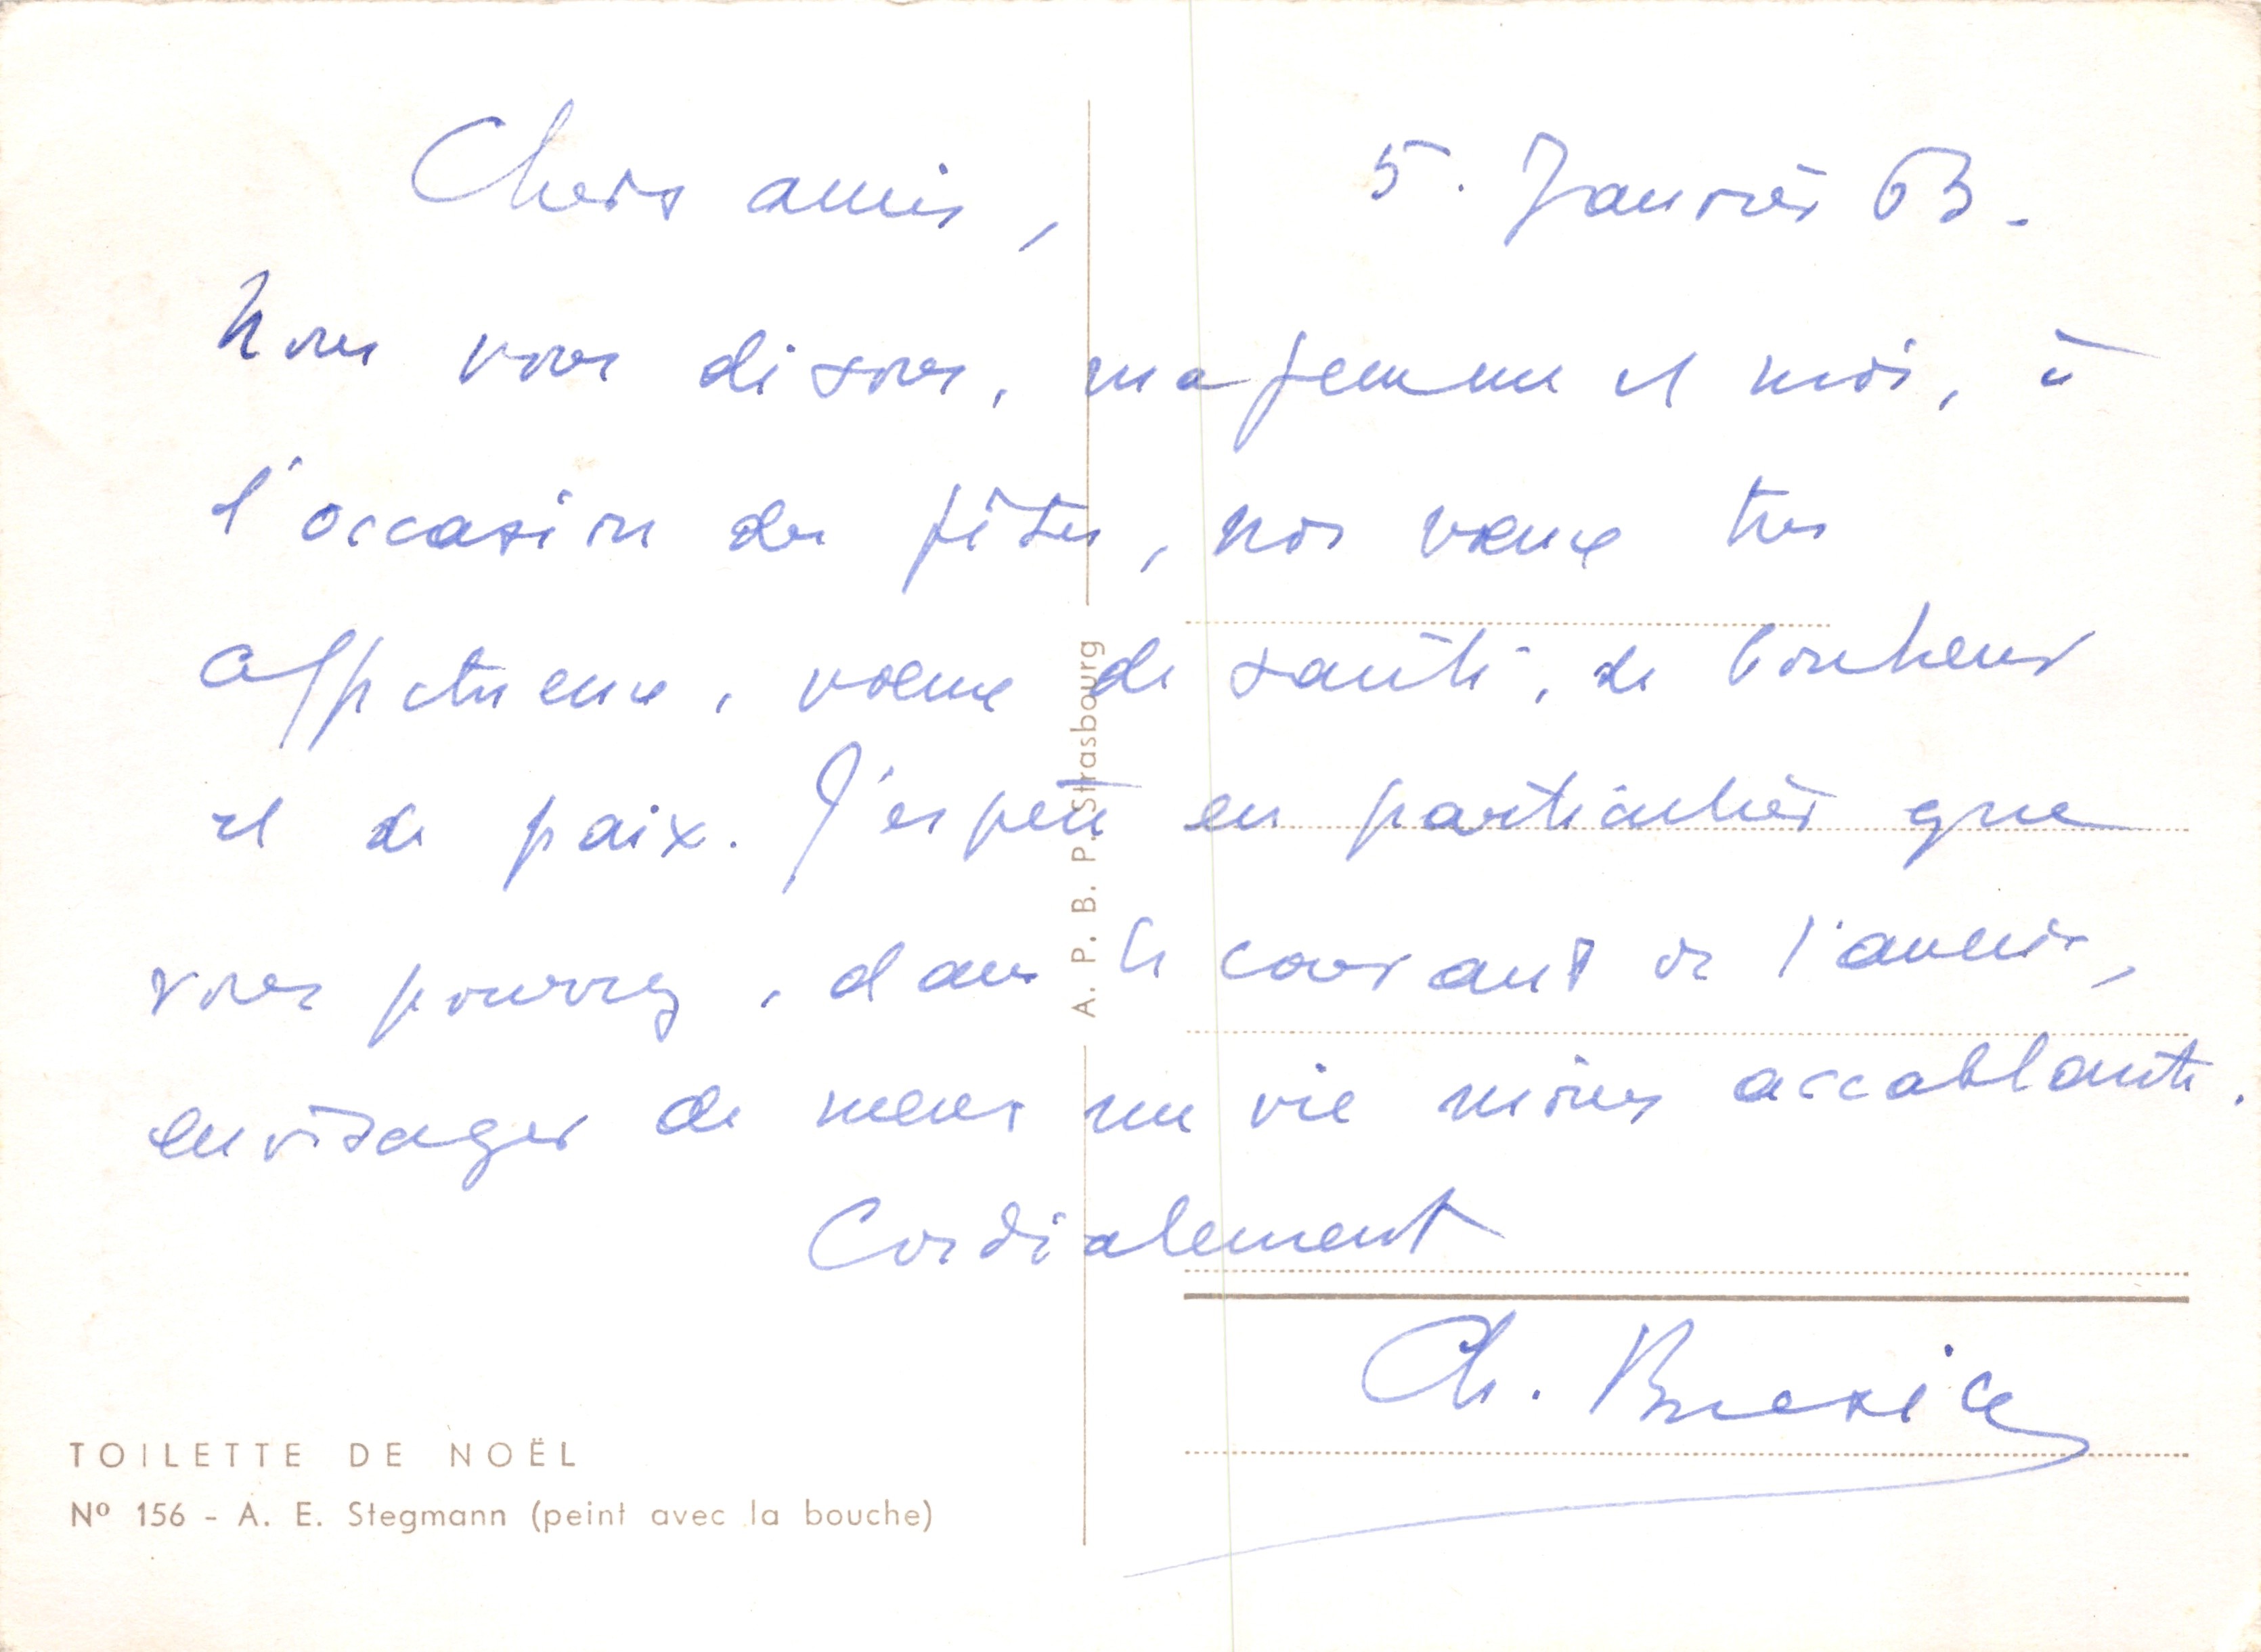 Chers amis,
5. Janvier 63.
Nous vous disons, ma femme et moi, à
l'occasion des fêtes, nos vœux très
affectueux, vœux de santé, de bonheur
et de paix. J'espère en particulier que
vous pourrez, dans le courant de l'année,
envisager de mener une vie moins accablante.
Cordialement
Ch.
A. P. B. P. Strasbourg
TOILETTE DE NOËL
Nº 156 - A. E. Stegmann (peint avec la bouche)